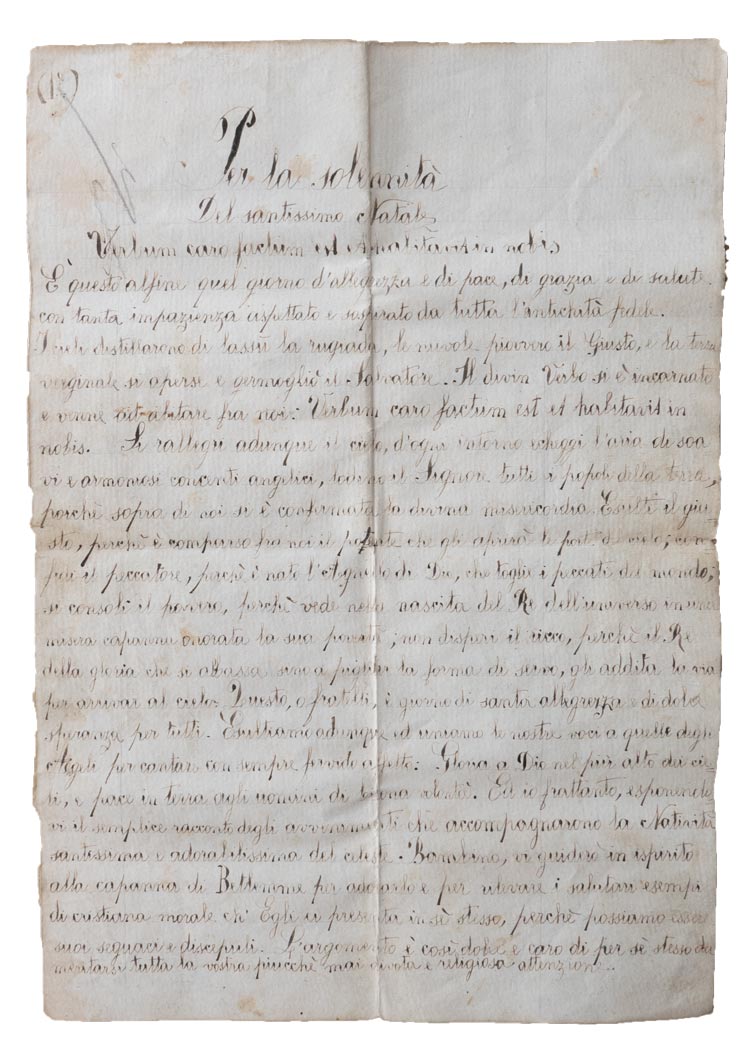 (12)
Per la solennità
Del santissimo Natale
Verbum caro factum est et habitavit in nobis
È questo alfine quel giorno d'allegrezza e di pace, di grazia e di salute
con tanta impazienza aspettato e sospirato da tutta l'antichità fedele.
I cieli distillarono di lassù la rugiada, le nuvole piovvero il Giusto, e la terra
verginale si aperse e germogliò il Salvatore. Il divin Verbo si è incarnato
e venne ad abitare fra noi: Verbum caro factum est et habitavit in
nobis. Si rallegri adunque il cielo, d'ogni intorno echeggi l'aria di soa
vi e armoniosi concenti angelici, lodino il Signor tutti i popoli della terra,
porchè sopra di noi si è confermata la divina misericordia. Esulti il giu=
sto, perchè è comparso fra noi il potente che gli aprirà le porte del cielo;
il peccatore, perchè è nato l'Agnello di Dio, che toglie i peccati del mondo;
si consoli il povero, perchè vede nella nascita del Re dell'universo in una
misera capanna onorata la sua povertà; non disperi il ricco, perchè il Re
della gloria che si abassa sino a pigliar la forma di servo, gli addita la via
per arrivar al cielo. Questo, o fratelli, è giorno di santa allegrezza e di dolce
speranza per tutti. Esultiamo adunque ed uniamo le nostre voci a quelle degli
Angeli per cantar con sempre fervido affetto: Gloria a Dio nel più alto dei cie=
li, e pace in terra agli uomini di buona volontà. Ed io frattanto, esponendo=
vi il semplice racconto degli avvenimenti che accompagnarono la Natività
santissima e adorabilissima del celeste Bambino, vi guiderò in ispirito
alla capanna di Betlemme per adorarlo e per rilevare i salutari esempi
di cristiana morale ch' Egli ci presenta in sè stesso, perchè possiamo esser
suoi seguaci e discepuli. L'argomento è così dolce e caro di per sè stesso da
meritarsi tutta la vostra piucchè mai divota e religiosa attenzione..